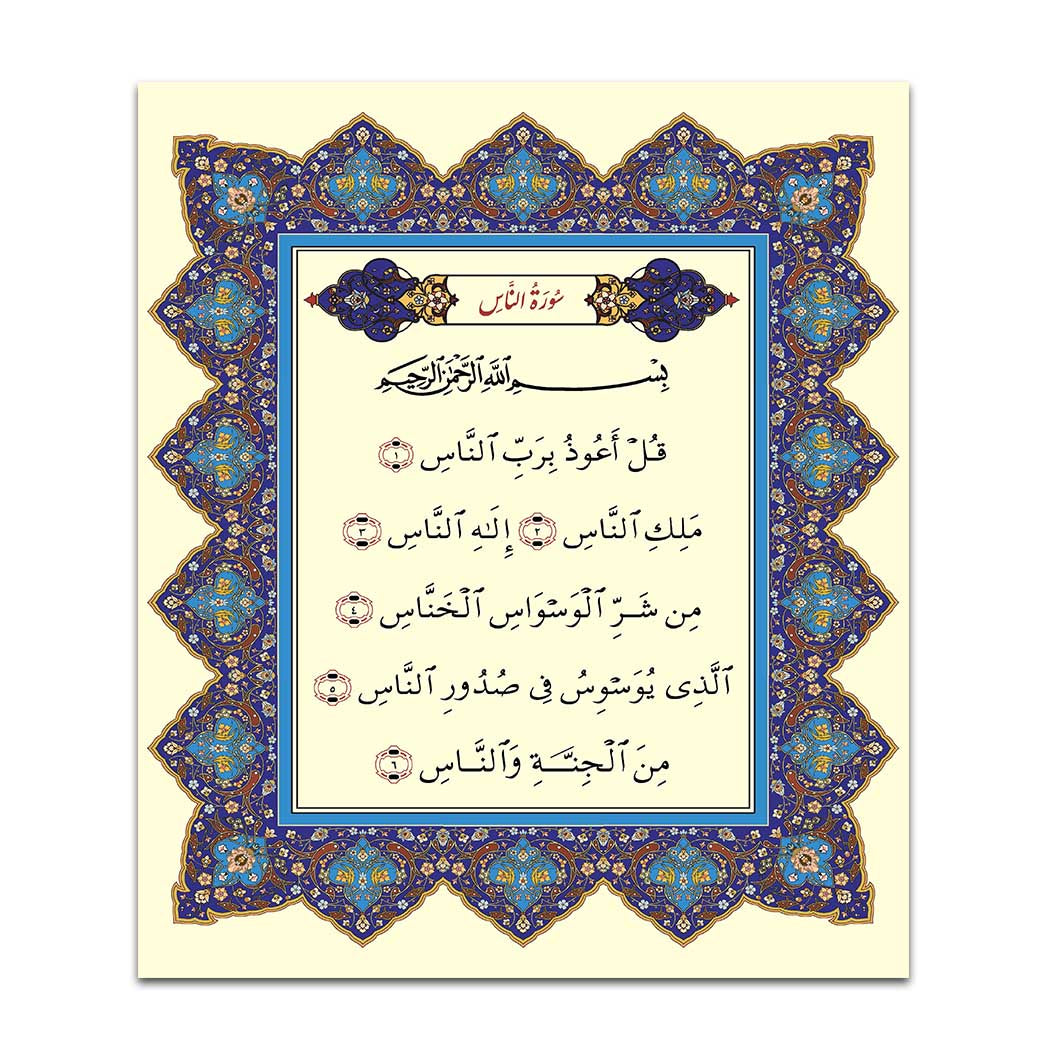 سُورَةُ النَّاسِ
بِسْمِ ٱللَّهِ ٱلرَّحْمَٰنِ ٱلرَّحِيمِ
قُلْ أَعُوذُ بِرَبِّ ٱلنَّاسِ ١
مَلِكِ ٱلنَّاسِ ٢ إِلَٰهِ ٱلنَّاسِ ٣
مِن شَرِّ ٱلْوَسْوَاسِ ٱلْخَنَّاسِ ٤
ٱلَّذِى يُوَسْوِسُ فِى صُدُورِ ٱلنَّاسِ ٥
مِنَ ٱلْجِنَّةِ وَٱلنَّاسِ ٦